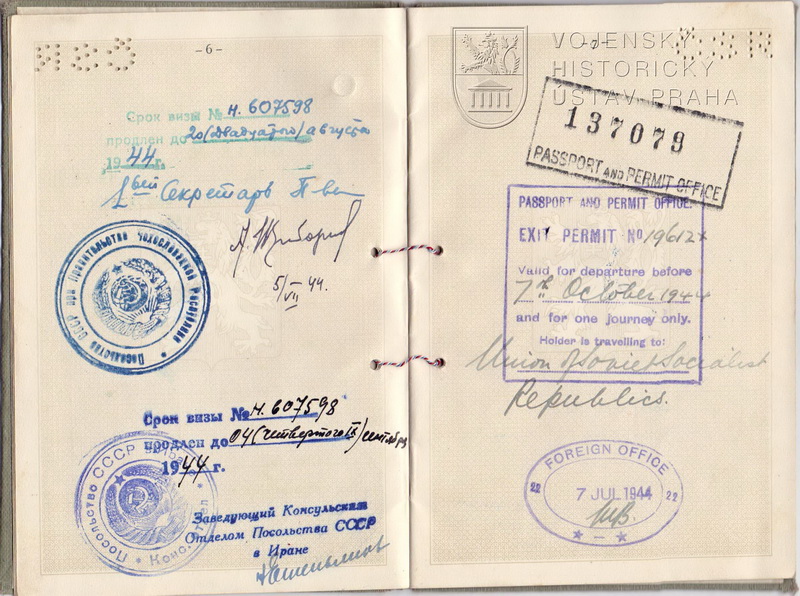 -6-
Срок визы № н. 607598
продлен до 20 (двадцатого) августа
1944 г.
1вый Секретарь П-ва
5/VII 44.
Посольство СССР при Правительстве Чехословацкой Республики
Срок визы № н. 607598
продлен до 04 (четвертого) сентября
1944 г.
Посольство СССР в Иране
Консул. отдел
Заведующий Консульским
Отделом Посольства СССР
в Иране
VOJENSKÝ
HISTORICKÝ
ÚSTAV PRAHA
137079
PASSPORT AND PERMIT OFFICE
PASSPORT AND PERMIT OFFICE.
EXIT PERMIT No 19612
Valid for departure before
7th October 1944
and for one journey only.
Holder is travelling to:
Union of Soviet Socialist
Republics.
FOREIGN OFFICE
22 7 JUL 1944 22